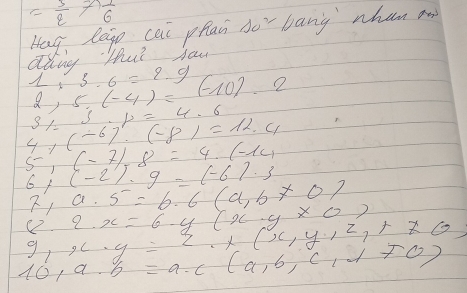 = 3/2 => 1/6
Hãy lập các phân số bằng nhau từ
đẳng thức sau
1, 3.6 = 2.9
2, 5.(-4) = (-10).2
3, 3.8 = 4.6
4, (-6).(-8) = 12.4
5, (-7).8 = 4.(-14)
6, (-2).9 = (-6).3
7, a.5 = b.6 (a,b ≠ 0)
8. 2.x = 6.y (x.y ≠ 0)
9, x.y = z.t (x,y,z,t ≠ 0)
10, a.b = a.c (a,b,c, ≠ 0)